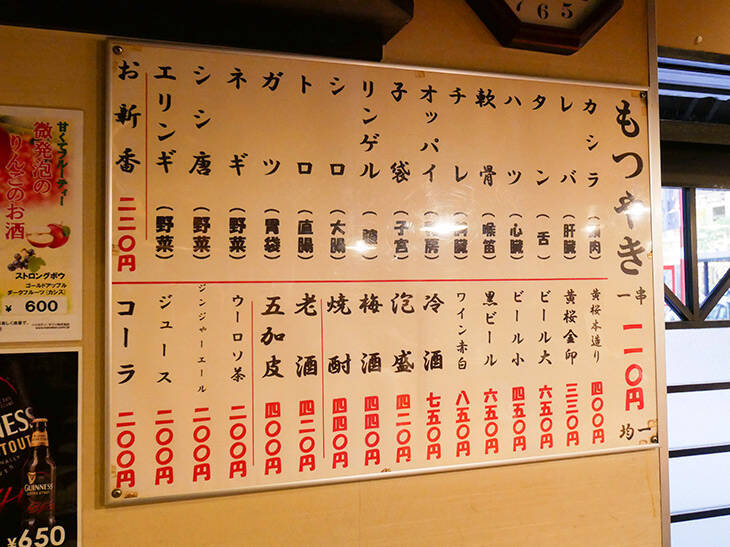 もつやき
一串 一一〇円 均一
カシラ
レバ(肝臓)
タン(舌)
ハツ(心臓)
軟骨(喉笛)
チレ
オッパイ
子袋(子宮)
リンゲル
シロ(大腸)
トロ(直腸)
ガツ(胃袋)
ネギ(野菜)
シシ唐(野菜)
エリンギ(野菜)
お新香 二二〇円
黄桜本造り 四〇〇円
黄桜金印 三三〇円
ビール大 六五〇円
ビール小 四五〇円
黒ビール 六五〇円
ワイン赤白 八五〇円
冷酒 七五〇円
泡盛 四二〇円
梅酒 四四〇円
焼酎 四四〇円
老酒 四二〇円
五加皮 四〇〇円
ウーロン茶 二〇〇円
ジンジャーエール 二〇〇円
ジュース 二〇〇円
コーラ 二〇〇円
甘くてフルーティー
微発泡の
りんごのお酒
ストロングボウ
ゴールドアップル
ダークフルーツ(カシス)
¥600
GUINNESS
¥650
7 6 5